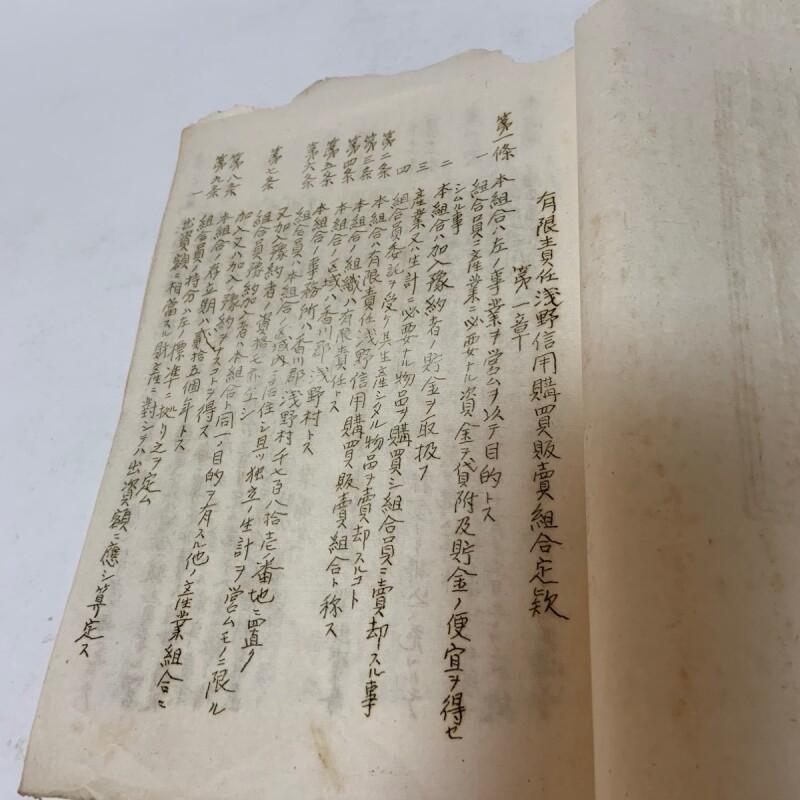 有限責任浅野信用購買販賣組合定款
第一章
第一條 本組合ハ左ノ事業ヲ営ムヲ以テ目的トス
一 組合員ニ産業ニ必要ナル資金ヲ貸附及貯金ノ便宜ヲ得セ
シムル事
二 本組合ハ加入豫約者ノ貯金ヲ取扱フ
三 産業又ハ生計ニ必要ナル物品ヲ購買シ組合員ニ賣却スル事
四 組合員委託ヲ受ケ其生産シタル物品ヲ賣却スルコト
第二条 本組合ハ有限責任浅野信用購買販賣組合ト称ス
第三条 本組合ノ組織ハ有限責任トス
第四条 本組合ノ区域ハ香川郡浅野村トス
第五条 本組合ノ事務所ハ香川郡浅野村千七百八拾壱ノ番地ニ置ク
第六条 組合員ハ本組合ノ区域内ニ居住シ且ツ独立ノ生計ヲ営ムモノニ限ル
又加入豫約者ノ資格
第七条 組合員豫約加入者ハ本組合ト同一ノ目的ヲ有スル他ノ産業組合ニ
加入又ハ加入豫約ヲナスコトヲ得ス
第八条 本組合ノ存立期ハ貳拾五個年トス
第九条 組合員ノ持分ハ左ノ標準ニ拠リ之ヲ定ム
一 出資額ニ相當スル財産ニ對シテハ出資額ニ應シ算定ス